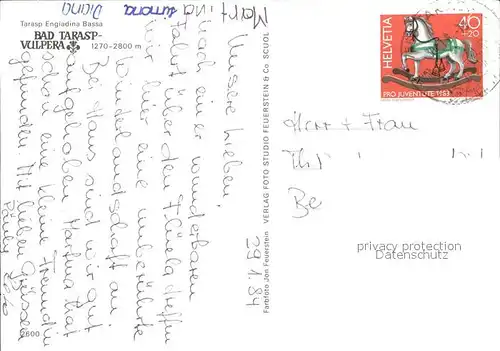 Tarasp Engiadina Bassa
BAD TARASP-
VULPERA
1270-2800 m
Unsere Lieben,
Nach einer wunderbaren
Fahrt über den Flüela treffen
wir hier eine unberührte
Winterlandschaft an.
Bei Hans sind wir gut
aufgehoben. Martina hat
schon eine kleine Freundin
gefunden. Mit lieben Grüssen
Simona
VERLAG FOTO STUDIO FEUERSTEIN & Co SCUOL
Farbfoto Jon Feuerstein
29.1.84
2600
HELVETIA
40
+20
PRO JUVENTUTE 1983
Herr + Frau
Be
privacy protection
Datenschutz